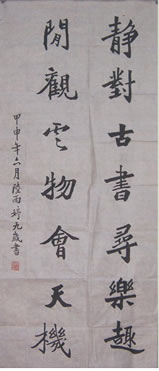 静對古書尋樂趣
閒觀雲物會天機
甲申年六月陸雨婷九歲書